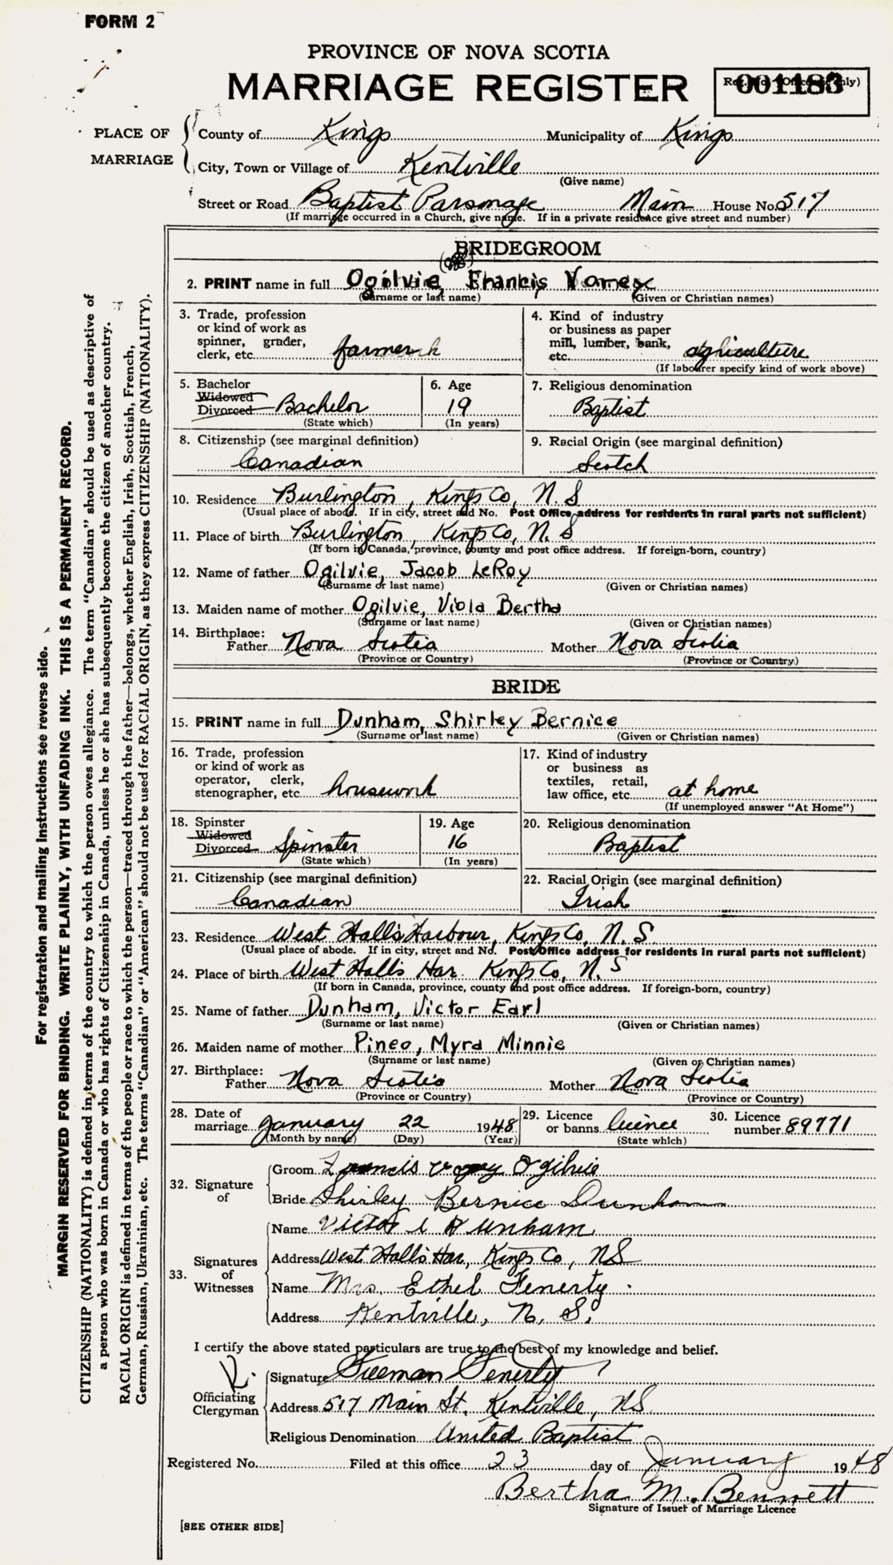 FORM 2
PROVINCE OF NOVA SCOTIA
MARRIAGE REGISTER
001183
PLACE OF MARRIAGE
County of Kings Municipality of Kings
City, Town or Village of Kentville
(Give name)
Street or Road Baptist Parsonage Main House No. 517
(If marriage occurred in a Church, give name. If in a private residence give street and number)
BRIDEGROOM
2. PRINT name in full Ogilvie, Francis
(Surname or last name) (Given or Christian names)
3. Trade, profession or kind of work as spinner, grader, clerk, etc. farmer
4. Kind of industry or business as paper mill, lumber, bank, etc. agriculture
(If labourer specify kind of work above)
5. Bachelor Widowed Divorced Bachelor
(State which)
6. Age 19
(In years)
7. Religious denomination
Baptist
8. Citizenship (see marginal definition)
Canadian
9. Racial Origin (see marginal definition)
Scotch
10. Residence Burlington, Kings Co, N.S
(Usual place of abode. If in city, street and No. Post Office address for residents in rural parts not sufficient)
11. Place of birth Burlington, Kings Co, N.S
(If born in Canada, province, county and post office address. If foreign-born, country)
12. Name of father Ogilvie, Jacob LeRoy
(Surname or last name) (Given or Christian names)
13. Maiden name of mother Ogilvie, Viola Bertha
(Surname or last name) (Given or Christian names)
14. Birthplace:
Father Nova Scotia Mother Nova Scotia
(Province or Country) (Province or Country)
BRIDE
15. PRINT name in full Dunham, Shirley Bernice
(Surname or last name) (Given or Christian names)
16. Trade, profession or kind of work as operator, clerk, stenographer, etc. housework
17. Kind of industry or business as textiles, retail, law office, etc. at home
(If unemployed answer "At Home")
18. Spinster Widowed Divorced Spinster
(State which)
19. Age 16
(In years)
20. Religious denomination
Baptist
21. Citizenship (see marginal definition)
Canadian
22. Racial Origin (see marginal definition)
Irish
23. Residence West Halls Harbour, Kings Co, N.S
(Usual place of abode. If in city, street and No. Post Office address for residents in rural parts not sufficient)
24. Place of birth West Halls Har. Kings Co, N.S
(If born in Canada, province, county and post office address. If foreign-born, country)
25. Name of father Dunham, Victor Earl
(Surname or last name) (Given or Christian names)
26. Maiden name of mother Pineo, Myra Minnie
(Surname or last name) (Given or Christian names)
27. Birthplace:
Father Nova Scotia Mother Nova Scotia
(Province or Country) (Province or Country)
28. Date of marriage January 22 1948
(Month by name) (Day) (Year)
29. Licence or banns licence
(State which)
30. Licence number 89771
32. Signature of
Groom Francis Ogilvie
Bride Shirley Bernice Dunham
33. Signatures of Witnesses
Name Victor E Dunham
Address West Halls Har, Kings Co, NS
Name Mrs. Ethel Fenerty.
Address Kentville, N.S.
I certify the above stated particulars are true to the best of my knowledge and belief.
Officiating Clergyman
Signature Freeman Fenerty
Address 517 Main St. Kentville, NS
Religious Denomination United Baptist
Registered No. Filed at this office 23 day of January 1948
Bertha M. Bennett
Signature of Issuer of Marriage Licence
[SEE OTHER SIDE]
For registration and mailing instructions see reverse side.
MARGIN RESERVED FOR BINDING. WRITE PLAINLY, WITH UNFADING INK. THIS IS A PERMANENT RECORD.
CITIZENSHIP (NATIONALITY) is defined in terms of the country to which the person owes allegiance. The term "Canadian" should be used as descriptive of
a person who was born in Canada or who has rights of Citizenship in Canada, unless he or she has subsequently become the citizen of another country.
RACIAL ORIGIN is defined in terms of the people or race to which the person—traced through the father—belongs, whether English, Irish, Scottish, French,
German, Russian, Ukrainian, etc. The terms "Canadian" or "American" should not be used for RACIAL ORIGIN, as they express CITIZENSHIP (NATIONALITY).